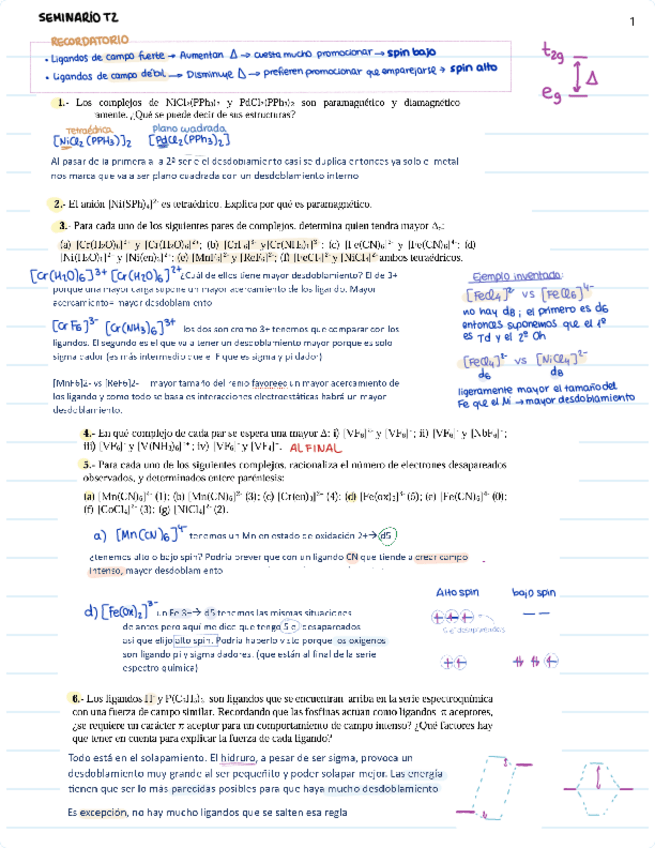 SEMINARIO T2
1
RECORDATORIO
• Ligandos de campo fuerte → Aumentan Δ → cuesta mucho promocionar → spin bajo
• Ligandos de campo débil → Disminuye Δ → prefieren promocionar que emparejarse → spin alto
t2g
Δ
eg
1.- Los complejos de NiCl₂(PPh₃)₂ y PdCl₂(PPh₃)₂ son paramagnético y diamagnético
amente. ¿Qué se puede decir de sus estructuras?
Tetraédrica plano cuadrada
[NiCl₂(PPH₃)]₂ [PdCl₂(PPh₃)₂]
Al pasar de la primera a la 2ª serie el desdoblamiento casi se duplica entonces ya solo el metal
nos marca que va a ser plano cuadrada con un desdoblamiento interno
2.- El anión [Ni(SPh)₄]²⁻ es tetraédrico. Explica por qué es paramagnético.
3.- Para cada uno de los siguientes pares de complejos, determina quien tendra mayor Δ₀:
(a) [Cr(H₂O)₆]²⁺ y [Cr(H₂O)₆]³⁺; (b) [CrF₆]³⁻ y [Cr(NH₃)₆]³⁺; (c) [Fe(CN)₆]³⁻ y [Fe(CN)₆]⁴⁻; (d)
[Ni(H₂O)₆]²⁺ y [Ni(en)₃]²⁺; (e) [MnF₆]²⁻ y [ReF₆]²⁻; (f) [FeCl₄]²⁻ y [NiCl₄]²⁻ ambos tetraédricos.
[Cr(H₂O)6]3+ [Cr(H₂O)6]2+ ¿Cuál de ellos tiene mayor desdoblamiento? El de 3+
porque una mayor carga supone un mayor acercamiento de los ligando. Mayor
acercamiento= mayor desdoblamiento
[CrF6]3- [Cr(NH3)6]3+ los dos son cromo 3+ tenemos que comparar con los
ligandos. El segundo es el que va a tener un desdoblamiento mayor porque es solo
sigma dador (es más intermedio que el F que es sigma y pi dador)
[MnF6]2- vs [ReF6]2- mayor tamaño del renio favorece un mayor acercamiento de
los ligando y como todo se basa es interacciones electroestáticas habrá un mayor
desdoblamiento.
Ejemplo inventado:
[FeCl4]2- vs [FeCl6]4-
no hay d8; el primero es d6
entonces suponemos que el 1º
es Td y el 2º Oh
[FeCl4]2- vs [NiCl4]2-
d6 d8
ligeramente mayor el tamaño del
Fe que el Ni → mayor desdoblamiento
4.- En qué complejo de cada par se espera una mayor Δ: i) [VF₆] y [VF₆]; ii) [VF₆] y [NbF₆];
iii) [VF₆] y [V(NH₃)₆]; iv) [VF₆] y [VF₄]. AL FINAL
5.- Para cada uno de los siguientes complejos, racionaliza el número de electrones desapareados
observados, y determinados entere paréntesis:
(a) [Mn(CN)₆]⁴⁻ (1); (b) [Mn(CN)₆]²⁻ (3); (c) [Cr(en)₃]²⁺ (4); (d) [Fe(ox)₃]³⁻ (5); (e) [Fe(CN)₆]⁴⁻ (0);
(f) [CoCl₄]²⁻ (3); (g) [NiCl₄]²⁻ (2).
a) [Mn(CN)6]4- tenemos un Mn en estado de oxidación 2+→d5
¿tenemos alto o bajo spin? Podría prever que con un ligando CN que tiende a crear campo
intenso, mayor desdoblamiento
Alto spin bajo spin
d) [Fe(ox)2]3- un Fe 3+→ d5 tenemos las mismas situaciones
de antes pero aquí me dice que tengo 5 e- desapareados
así que elijo alto spin. Podría haberlo visto porque los oxígenos
son ligando pi y sigma dadores. (que están al final de la serie
espectro química)
5 e- desapareados
6.- Los ligandos H⁻ y P(C₆H₅)₃ son ligandos que se encuentran arriba en la serie espectroquímica
con una fuerza de campo similar. Recordando que las fosfinas actuan como ligandos π aceptores,
¿se requiere un carácter π aceptor para un comportamiento de campo intenso? ¿Qué factores hay
que tener en cuenta para explicar la fuerza de cada ligando?
Todo está en el solapamiento. El hidruro, a pesar de ser sigma, provoca un
desdoblamiento muy grande al ser pequeñito y poder solapar mejor. Las energía
tienen que ser lo más parecidas posibles para que haya mucho desdoblamiento
Es excepción, no hay mucho ligandos que se salten esa regla